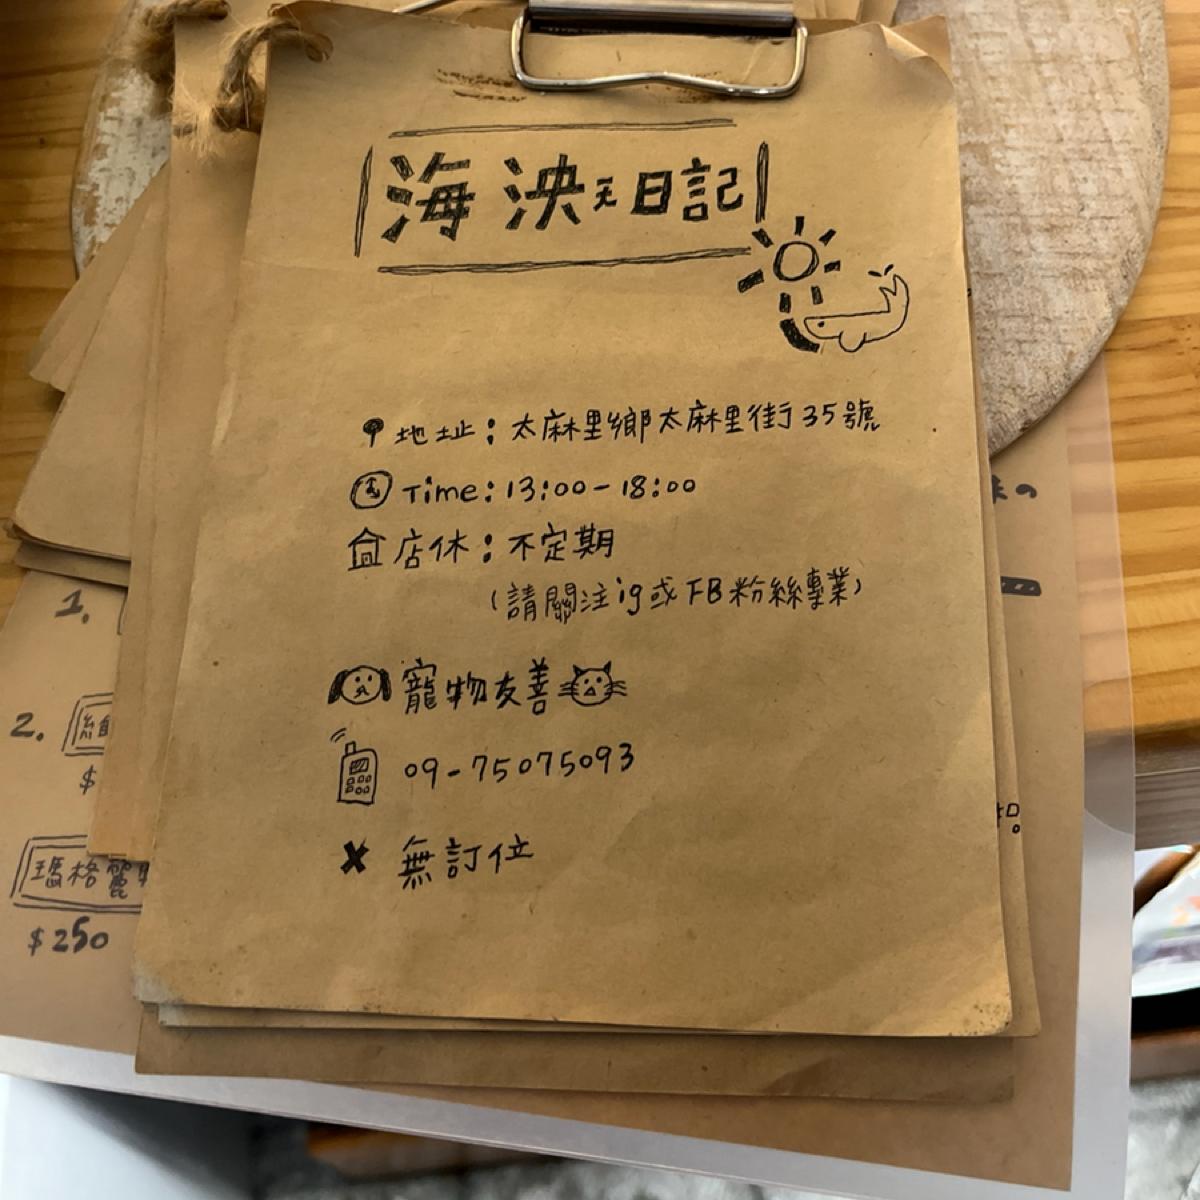 海泱天日記
地址：太麻里鄉太麻里街35號
Time：13:00-18:00
店休：不定期
（請關注ig或FB粉絲專業）
寵物友善
09-75075093
✗ 無訂位
1.
2.
$
瑪格麗
$250
の